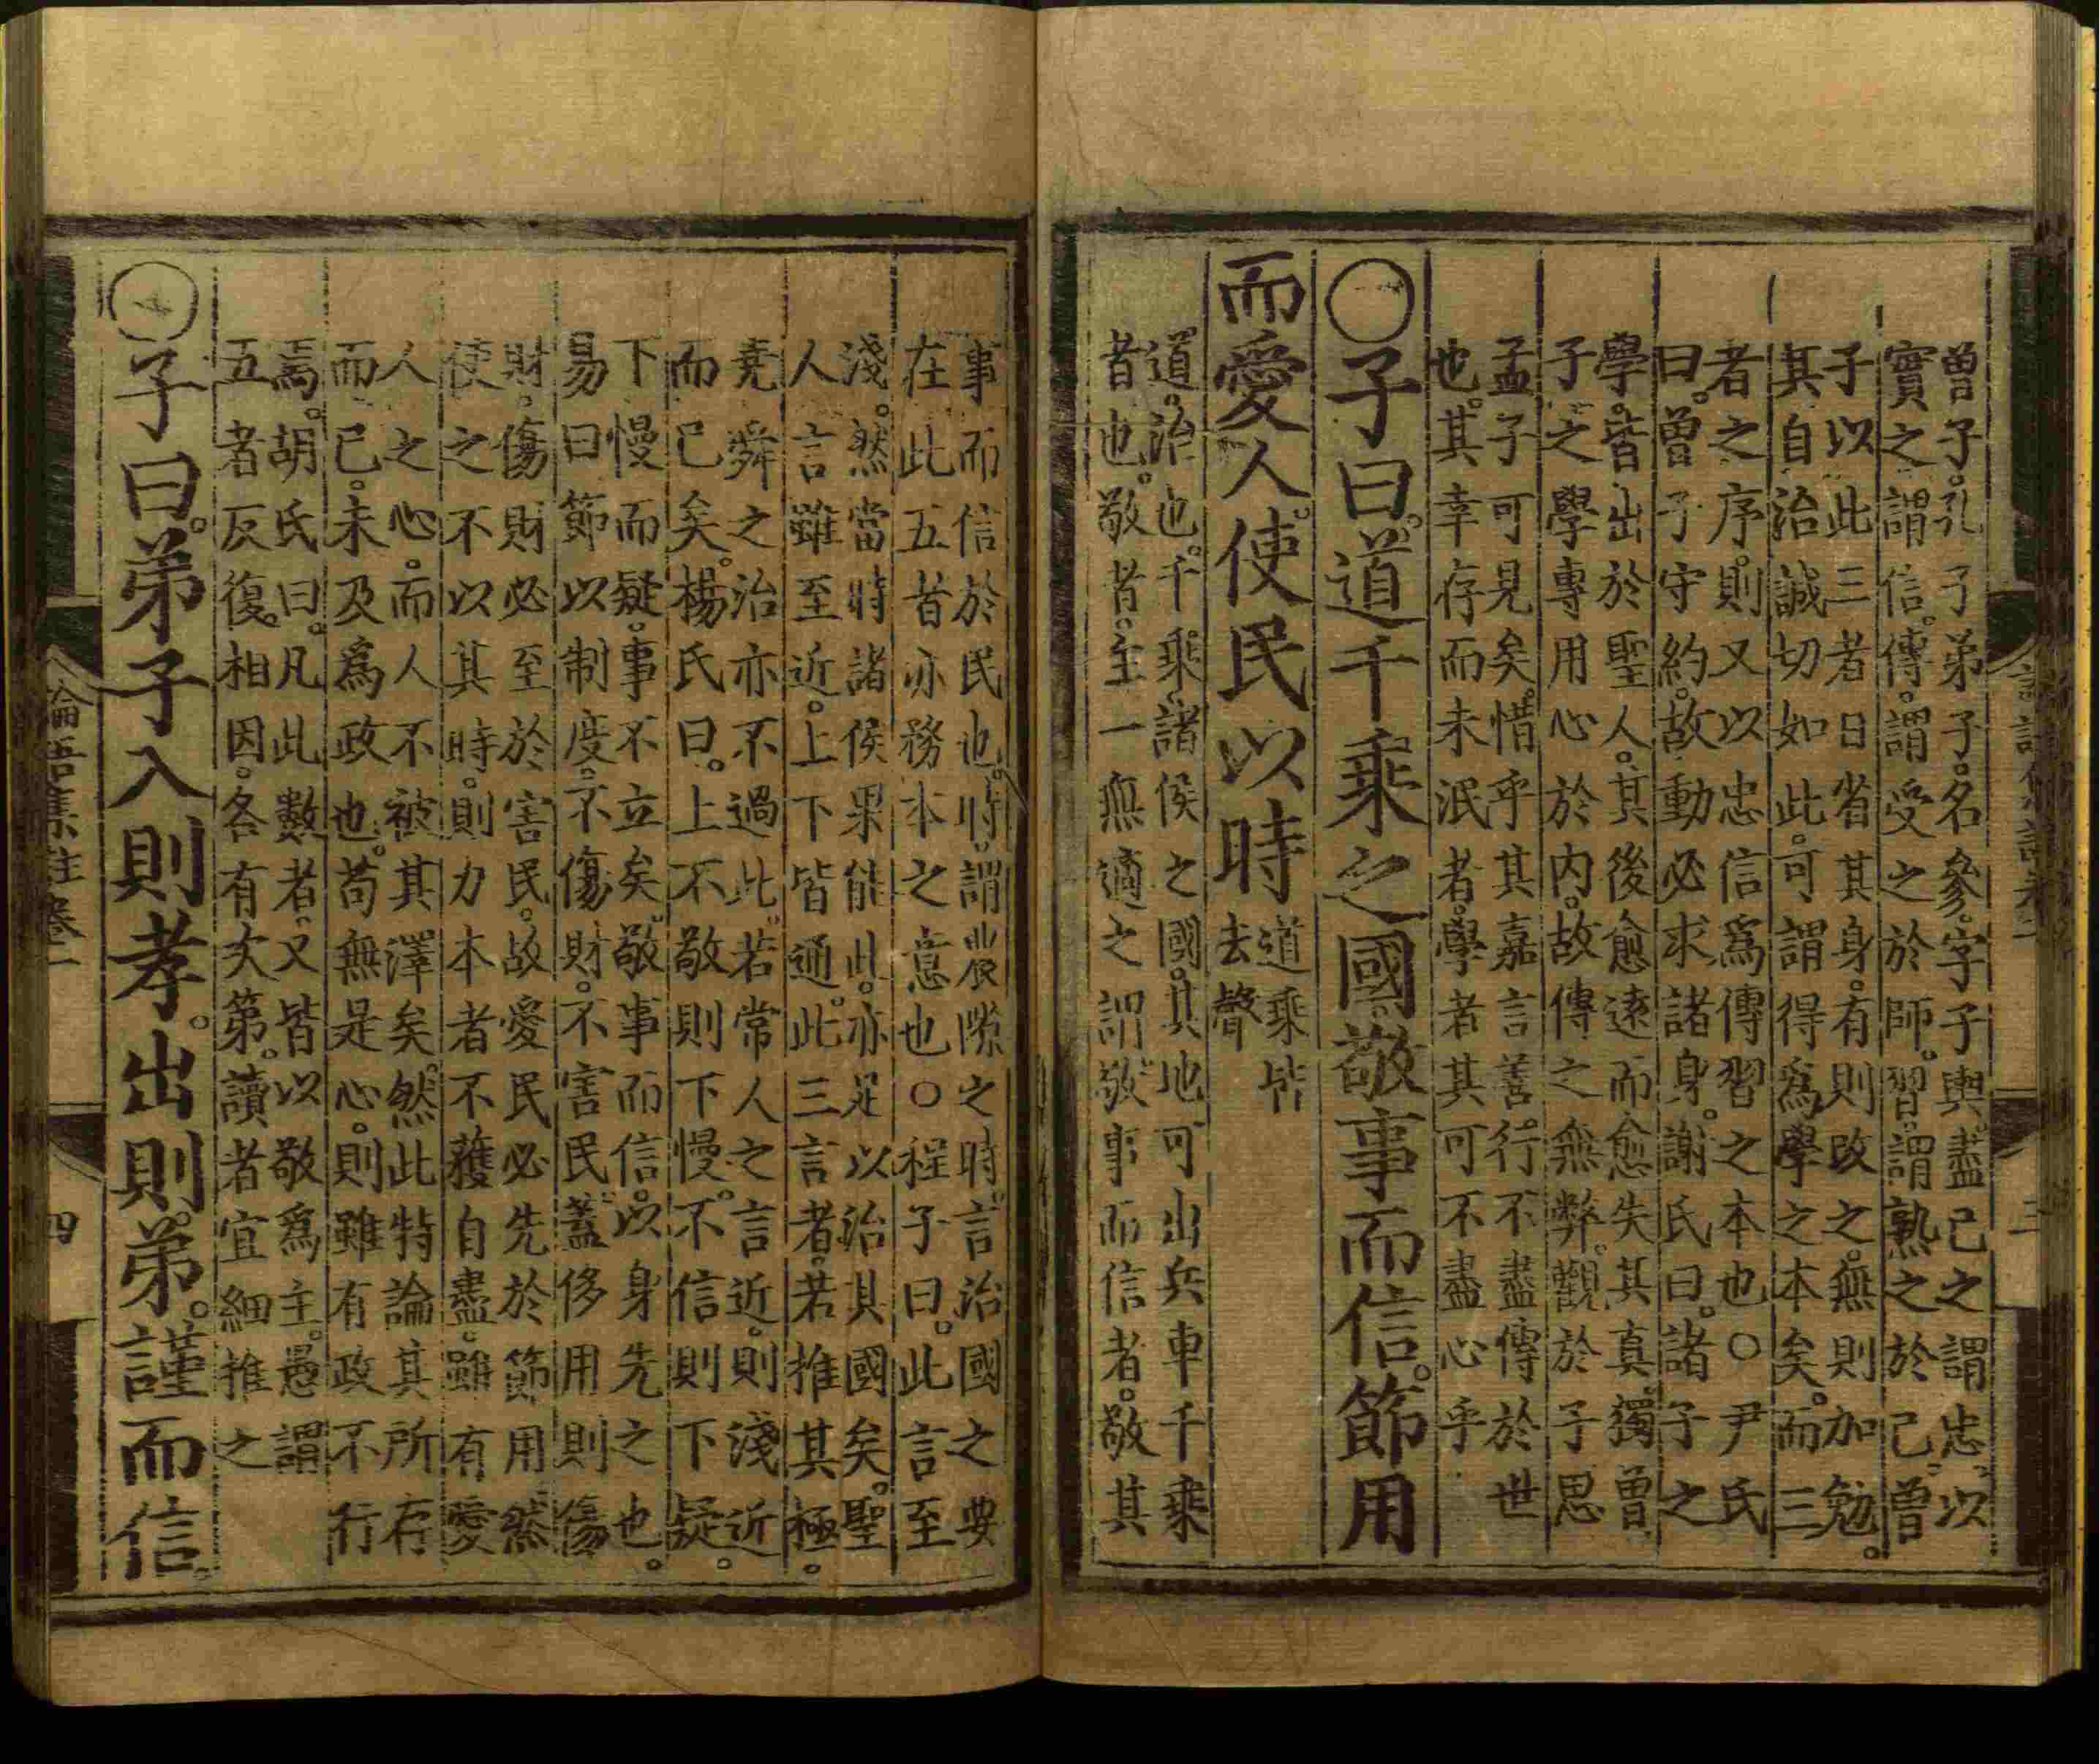 曾子。孔子弟子。名參。字子輿。盡己之謂忠。以
實之謂信。傳。謂受之於師。習。謂熟之於己。曾
子以此三者日省其身。有則改之。無則加勉。
其自治誠切如此。可謂得爲學之本矣。而三
者之序。則又以忠信爲傳習之本也○尹氏
曰。曾子守約。故動必求諸身。謝氏曰。諸子之
學。皆出於聖人。其後愈遠而愈失其真。獨曾
子之學專用心於内。故傳之無弊。觀於子思
孟子可見矣。惜乎其嘉言善行。不盡傳於世
也。其幸存而未泯者。學者其可不盡心乎
○子曰。道千乘之國。敬事而信。節用
而愛人。使民以時
道乘皆
去聲
道。治也。千乘。諸侯之國。其地可出兵車千乘
者也。敬者。主一無適之謂。敬事而信者。敬其
事而信於民也。時。謂農隙之時。言治國之要
在此五者亦務本之意也○程子曰。此言至
淺。然當時諸侯果能此。亦足以治其國矣。聖
人言雖至近。上下皆通。此三言者。若推其極。
堯舜之治亦不過此。若常人之言近。則淺近
而已矣。楊氏曰。上不敬則下慢。不信則下疑。
下慢而疑。事不立矣。敬事而信。以身先之也。
易曰節以制度。不傷財。不害民。蓋侈用則傷
財。傷財必至於害民。故愛民必先於節用。然
使之不以其時。則力本者不獲自盡。雖有愛
人之心。而人不被其澤矣。然此特論其所存
而已。未及爲政也。苟無是心。則雖有政不行
焉。胡氏曰。凡此數者。又皆以敬爲主。愚謂
五者反復。相因。各有次第。讀者宜細推之
○子曰。弟子入則孝。出則弟。謹而信。
論吾集註卷一
四